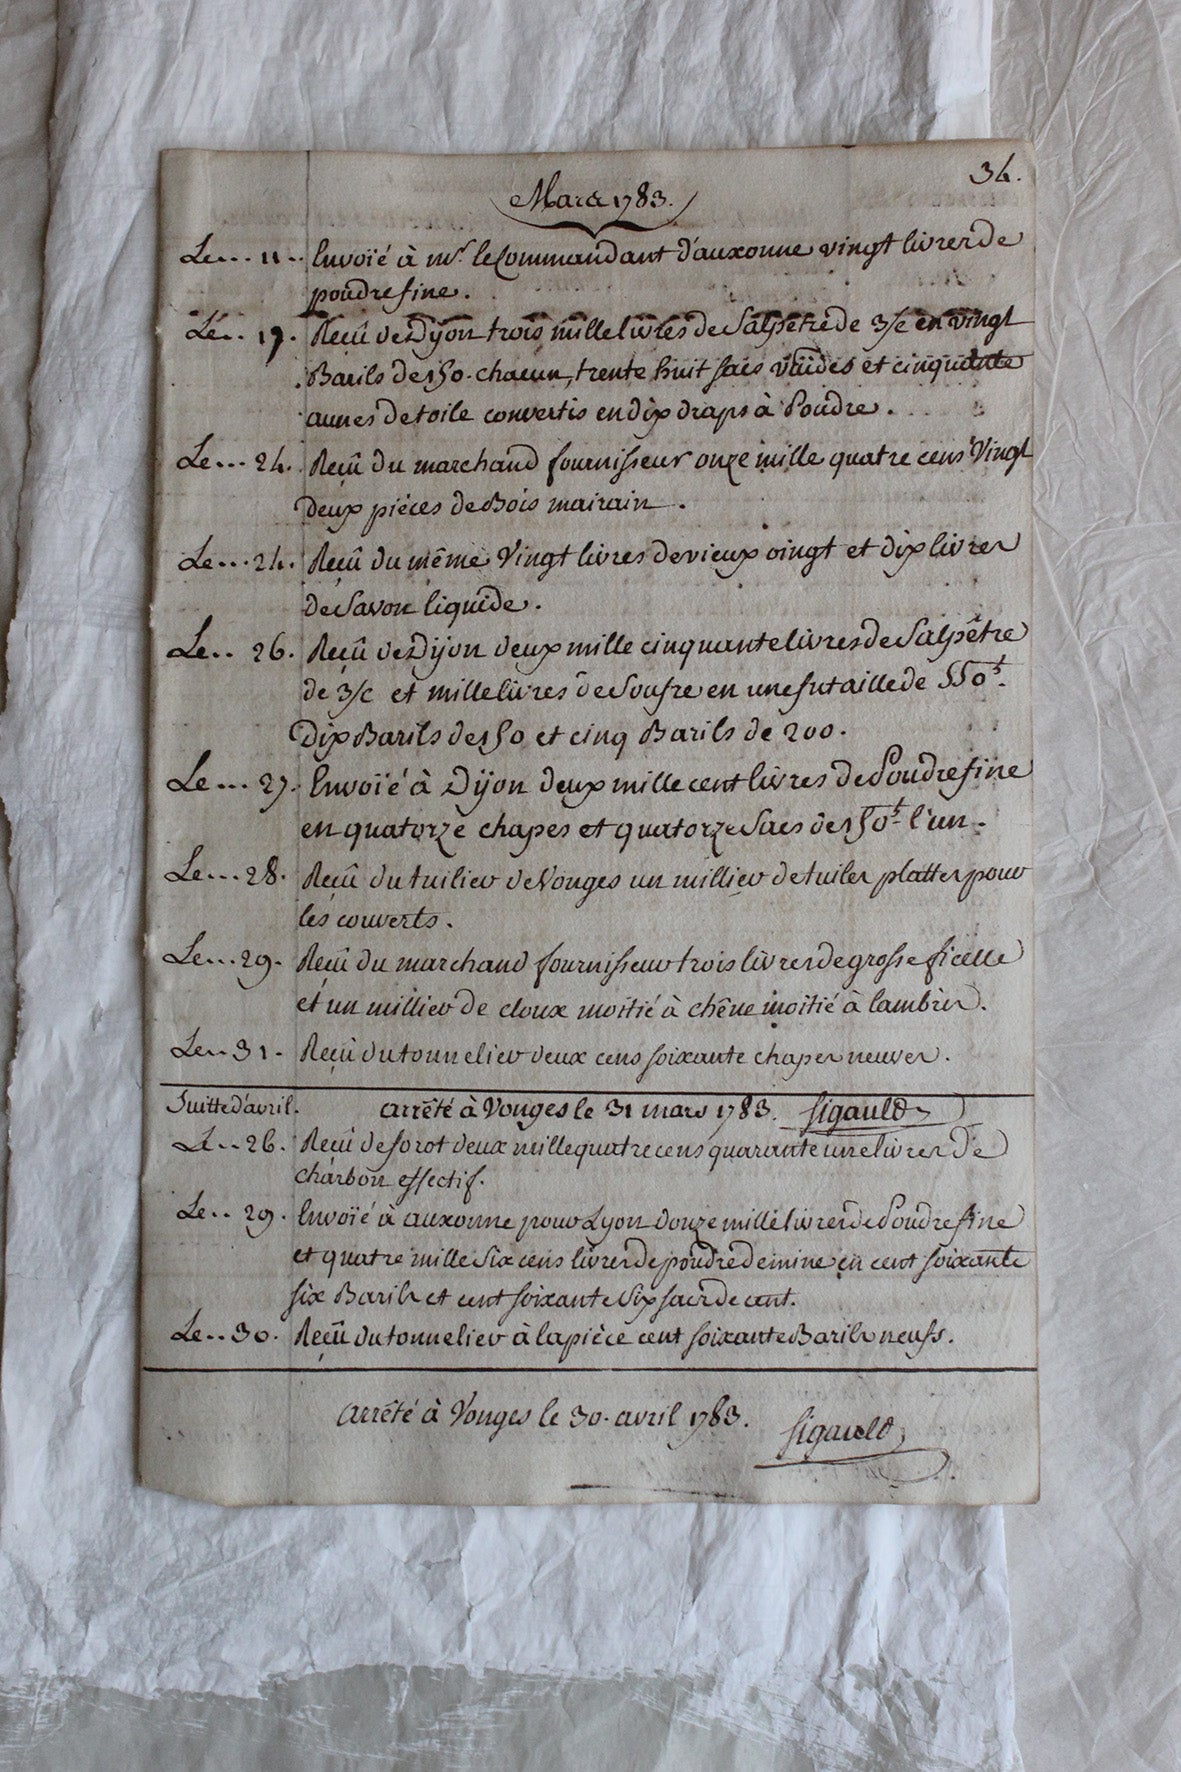 34.
Mars 1783.
Le... 11.. Envoïé à mr. le Commandant d'auxonne vingt livres de
poudre fine.
Le.. 19. Reçû de Dijon trois mille livres de Salpêtre de 3/c en vingt
Barils de 150. chacun, trente huit sacs vuides et cinquante
aunes de toile convertis en dix draps à Poudre.
Le... 24. Reçû du marchand fournisseur onze mille quatre cens Vingt
Deux pièces de Bois mairain.
Le... 24. Reçû du même Vingt livres de vieux oingt et dix livres
de Savon liquide.
Le.. 26. Reçû de Dijon deux mille cinquante livres de Salpêtre
de 3/c et mille livres de Soufre en une futaille de 550t.
Dix Barils de 150 et cinq Barils de 200.
Le... 27. Envoïé à Dijon deux mille cent livres de Poudre fine
en quatorze chapes et quatorze Sacs de 150t. l'un.
Le... 28. Reçû du tuilier de Vonges un millier de tuiles plattes pour
les couverts.
Le... 29. Reçû du marchand fournisseur trois livres de grosse ficelle
et un millier de cloux moitié à chêne moitié à lambris.
Le.. 31. Reçû du tonnelier deux cens soixante chapes neuves.
Suitte d'avril. arrêté à Vonges le 31 mars 1783. Sigauld
Le.. 26. Reçû de forot deux mille quatre cens quarante une livres de
charbon effectif.
Le.. 29. Envoïé à auxonne pour Lyon douze mille livres de Poudre fine
et quatre mille Six cens livres de poudre de mine en cent soixante
six Barils et cent soixante Six sacs de cent.
Le.. 30. Reçû du tonnelier à la pièce cent soixante Barils neufs.
arrêté à Vonges le 30. avril 1783. Sigauld